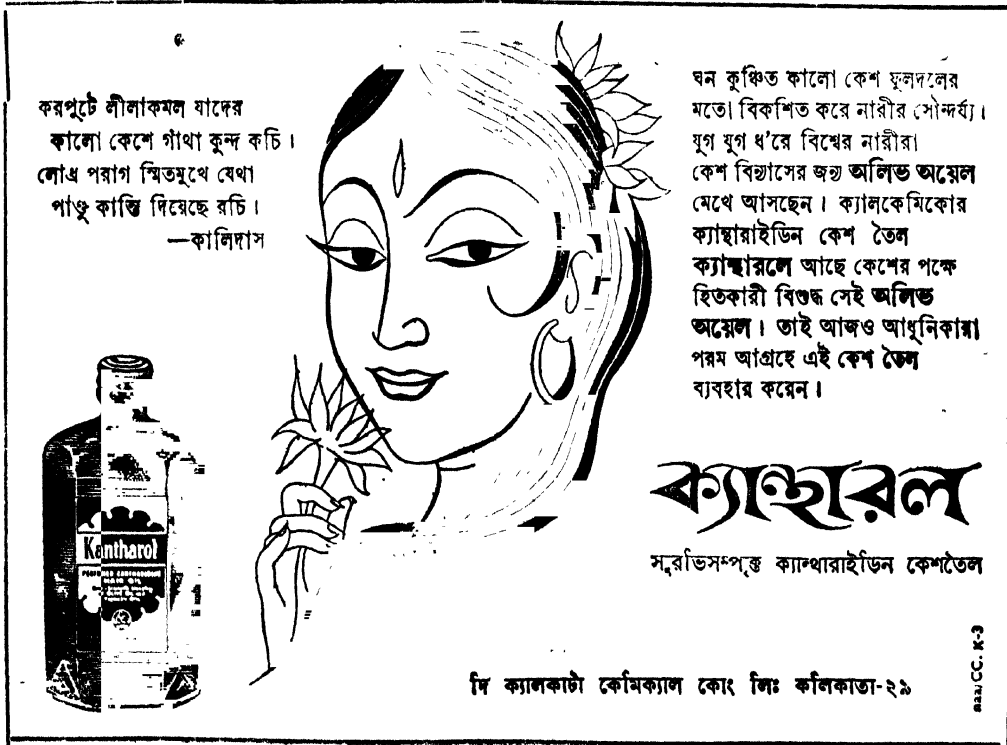 করপুটে লীলাকমল যাদের
কালো কেশে গাঁথা কুন্দ কচি।
লোধ্র পরাগ স্মিতমুখে যেথা
পাণ্ডু কান্তি দিয়েছে রচি।
—কালিদাস
ঘন কুঞ্চিত কালো কেশ ফুলদলের
মতো বিকশিত করে নারীর সৌন্দর্য্য।
যুগ যুগ ধ'রে বিশ্বের নারীরা
কেশ বিন্যাসের জন্য অলিভ অয়েল
মেখে আসছেন। ক্যালকেমিকোর
ক্যান্থারাইডিন কেশ তৈল
ক্যান্থারলে আছে কেশের পক্ষে
হিতকারী বিশুদ্ধ সেই অলিভ
অয়েল। তাই আজও আধুনিকারা
পরম আগ্রহে এই কেশ তৈল
ব্যবহার করেন।
Kantharol
ক্যান্থারল
সুরভিসম্পৃক্ত ক্যান্থারাইডিন কেশতৈল
দি ক্যালকাটা কেমিক্যাল কোং লিঃ কলিকাতা-২৯
CC. K-3